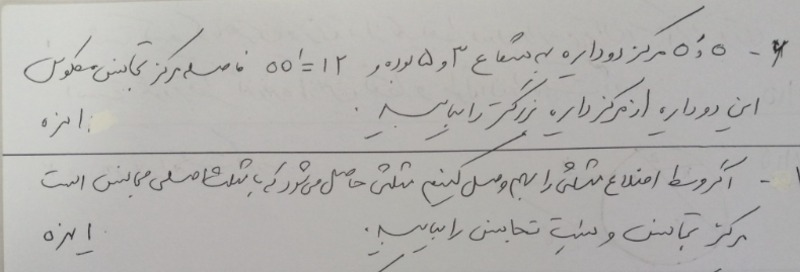 ۶- O و O′ مرکز دو دایره به شعاع ۳ و ۵ بوده و OO′=۱۲ فاصله مرکز تجانس معکوس
این دو دایره از مرکز دایره بزرگتر را بیابید.
۱نمره
- اگر وسط اضلاع مثلثی را بهم وصل کنیم مثلثی حاصل می‌شود که با مثلث اصلی مجانس است
مرکز تجانس و نسبت تجانس را بیابید.
۱نمره